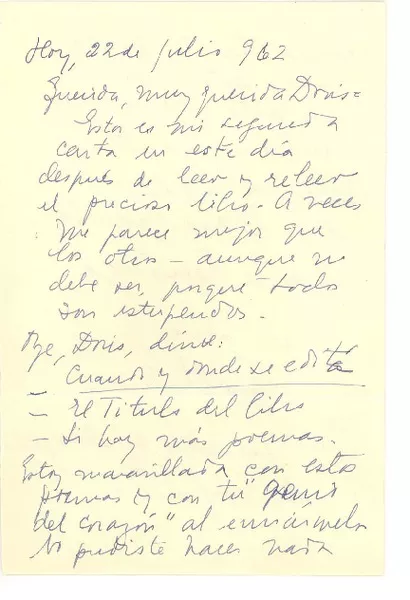 Hoy, 22 de julio 962
Querida, muy querida Doris =
Esta es mi segunda
carta en este día
después de leer y releer
el precioso libro. A veces
me parece mejor que
los otros – aunque no
debe ser, porque todos
son estupendos.
Oye, Doris, dime:
Cuando y donde se edita
– El Titulo del libro
– Si hay más poemas.
Estoy maravillada con estos
poemas y con tu "genio
del corazón" al enviármelo
No pudiste hacer nada